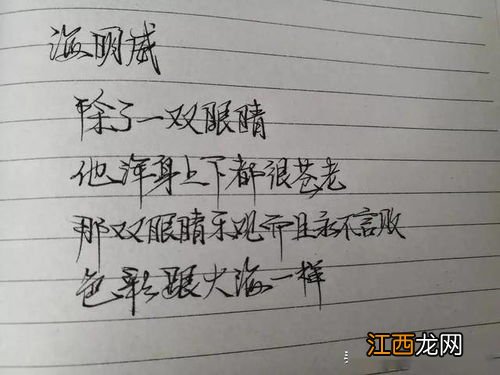 海明威
除了一双眼睛
他浑身上下都很苍老
那双眼睛乐观而且永不言败
色彩跟大海一样
江西龙网